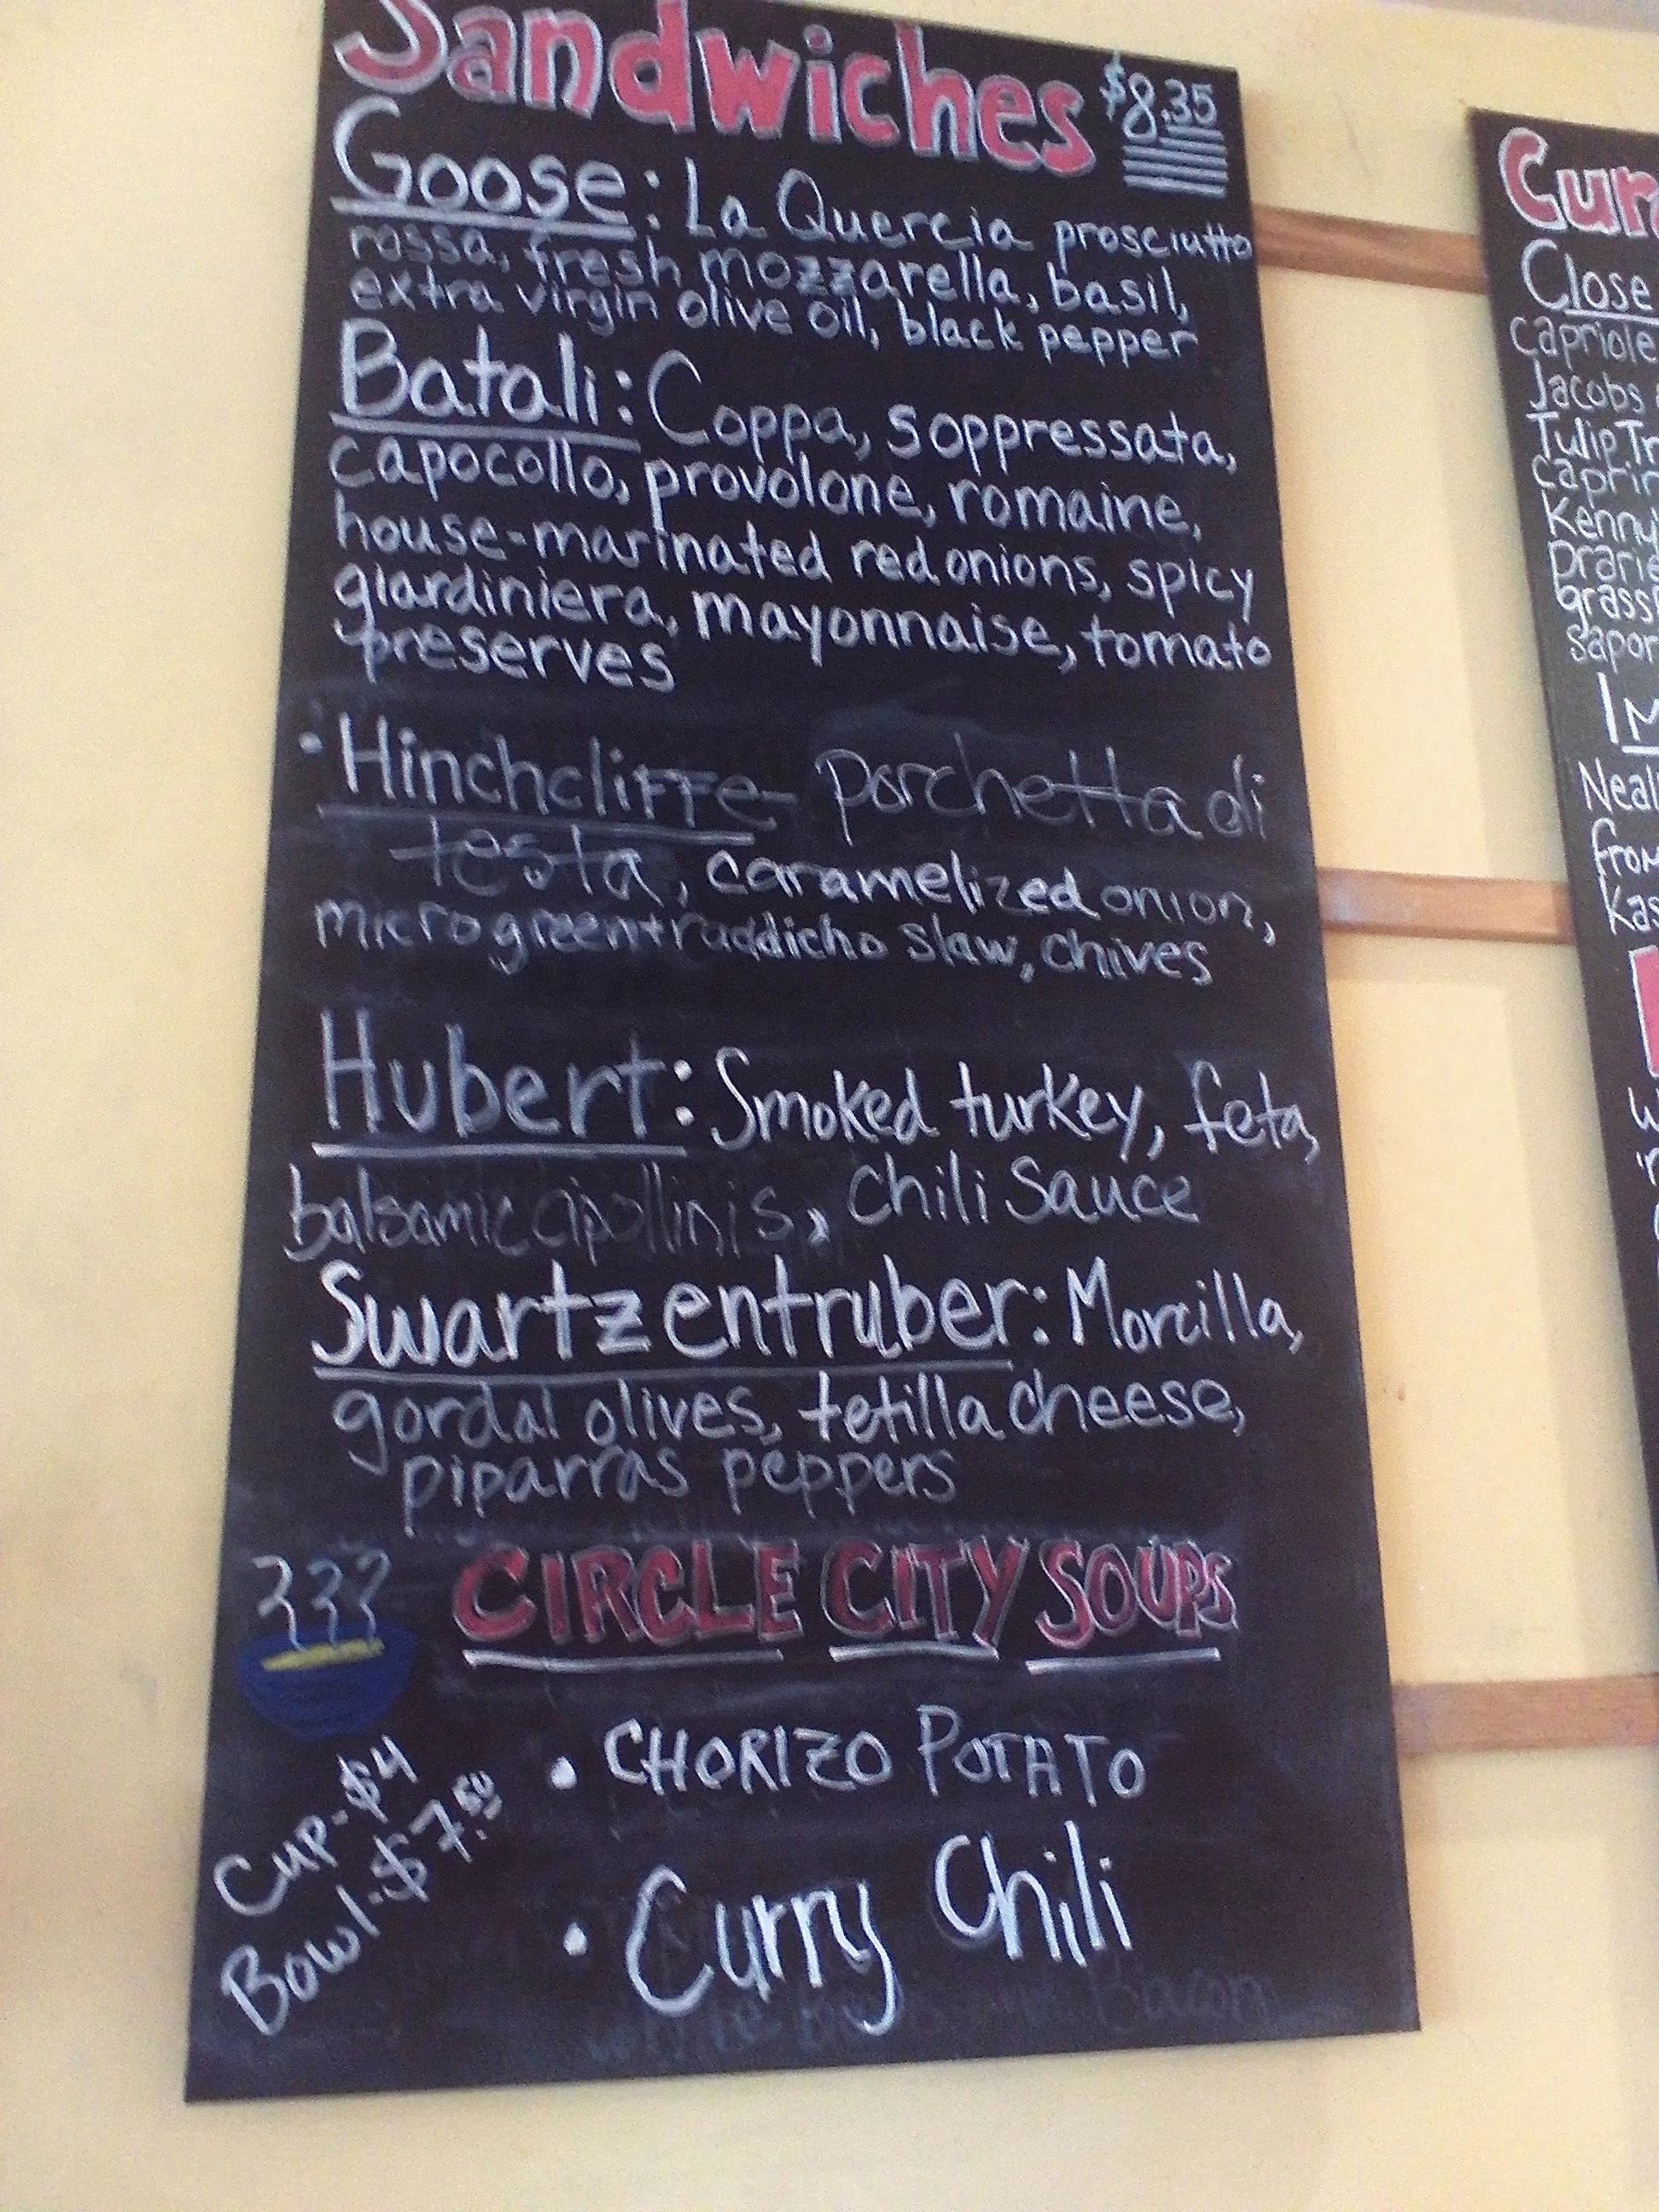 Sandwiches $8.35
Goose: La Quercia prosciutto
rossa, fresh mozzarella, basil,
extra virgin olive oil, black pepper
Batali: Coppa, soppressata,
capocollo, provolone, romaine,
house-marinated red onions, spicy
giardiniera, mayonnaise, tomato
preserves
• Hinchcliffe- porchetta di
testa, caramelized onion,
microgreen+raddicho slaw, chives
Hubert: Smoked turkey, feta,
balsamic cipollinis, Chili Sauce
Swartzentruber: Morcilla,
gordal olives, tetilla cheese,
piparras peppers
CIRCLE CITY SOUPS
Cup-$4
Bowl-$7.50
• CHORIZO POTATO
• Curry Chili
Bacon
Cur
Close
capriole
Jacobs
Tulip Tr
caprin
Kenny'
prarie
grass
sapor
IM
Neal
from
Kas